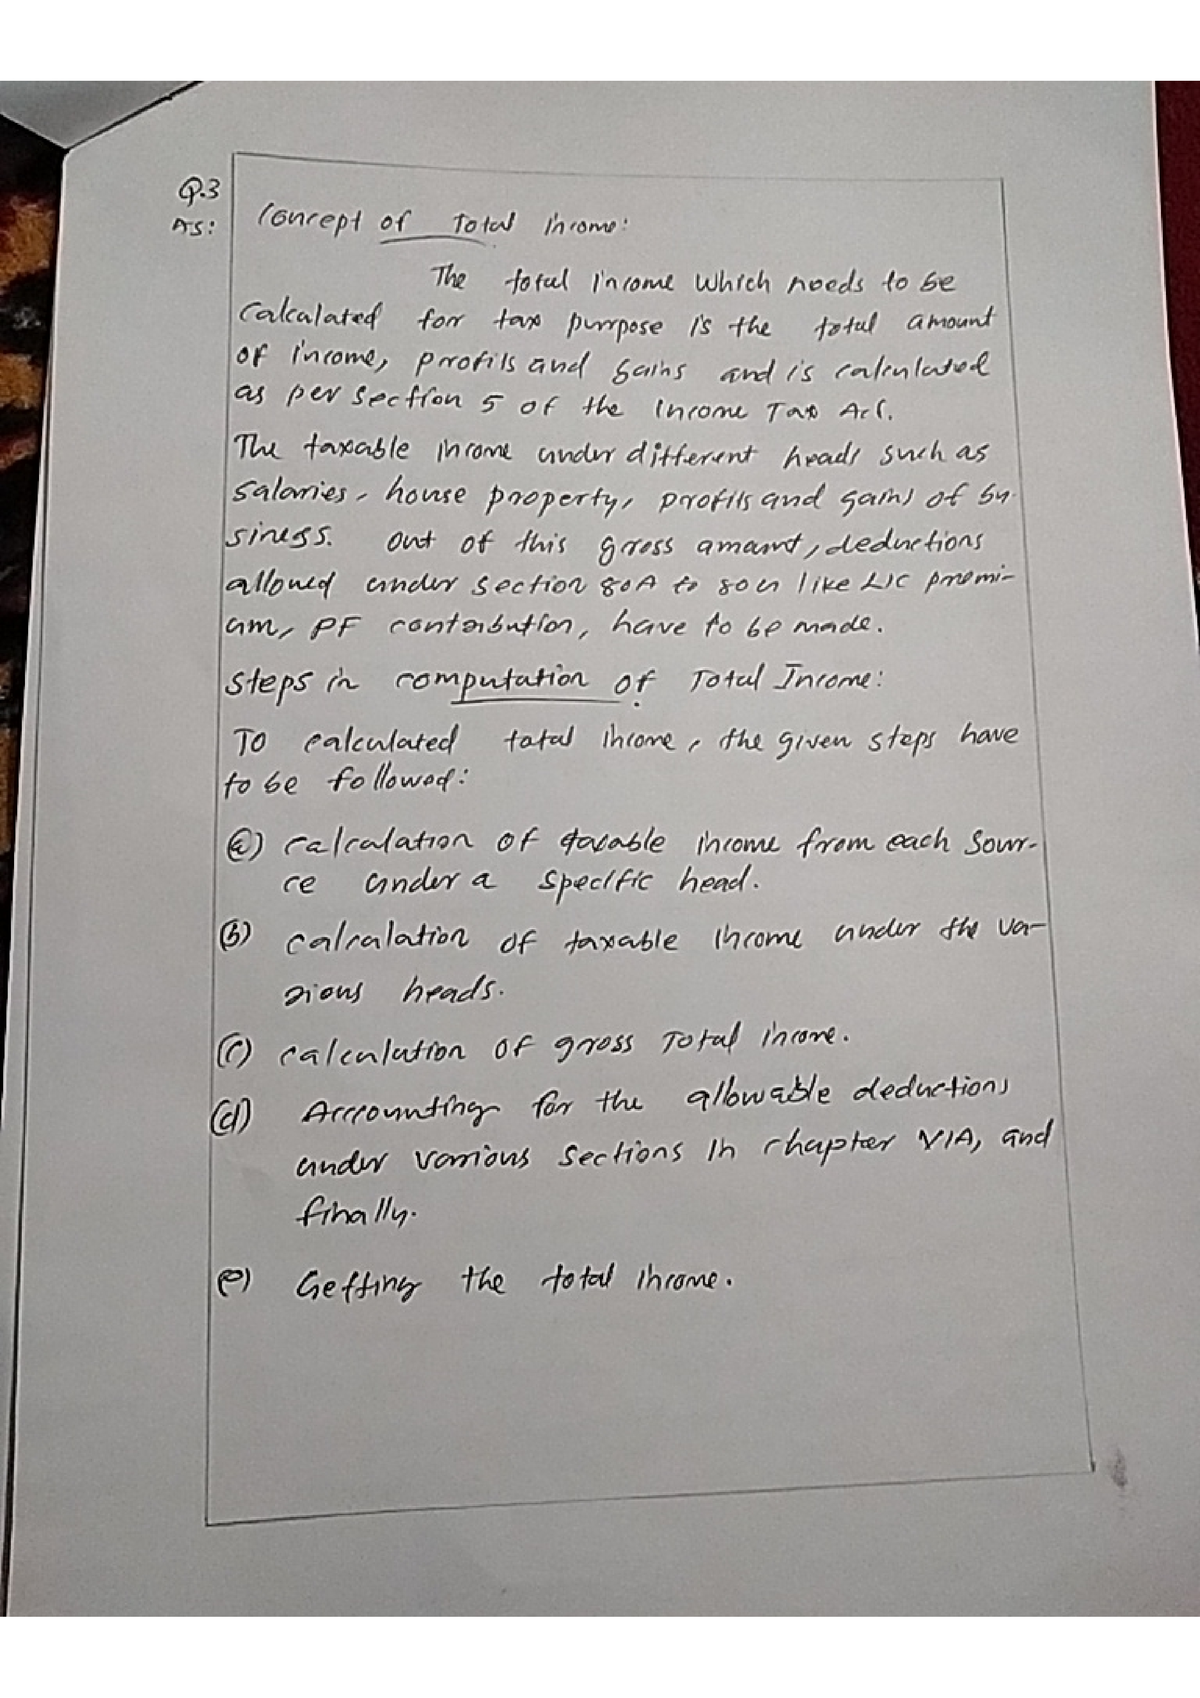 Q.3
AS: Concept of Total income:
The total income which needs to be
calcalated for tax purpose is the total amount
of income, profits and gains and is calculated
as per section 5 of the Income Tax Act.
The taxable income under different heads such as
salaries, house property, profits and gains of bu-
siness. out of this gross amount, deductions
allowed under section 80A to 80U like LIC premi-
um, PF contribution, have to be made.
Steps in computation of Total Income:
To calculated total income, the given steps have
to be followed:
(a) calcalation of taxable income from each Sour-
ce under a specific head.
(b) calcalation of taxable income under the va-
rious heads.
(c) calculation of gross Total income.
(d) Accounting for the allowable deductions
under various sections in chapter VIA, and
finally.
(e) Getting the total income.